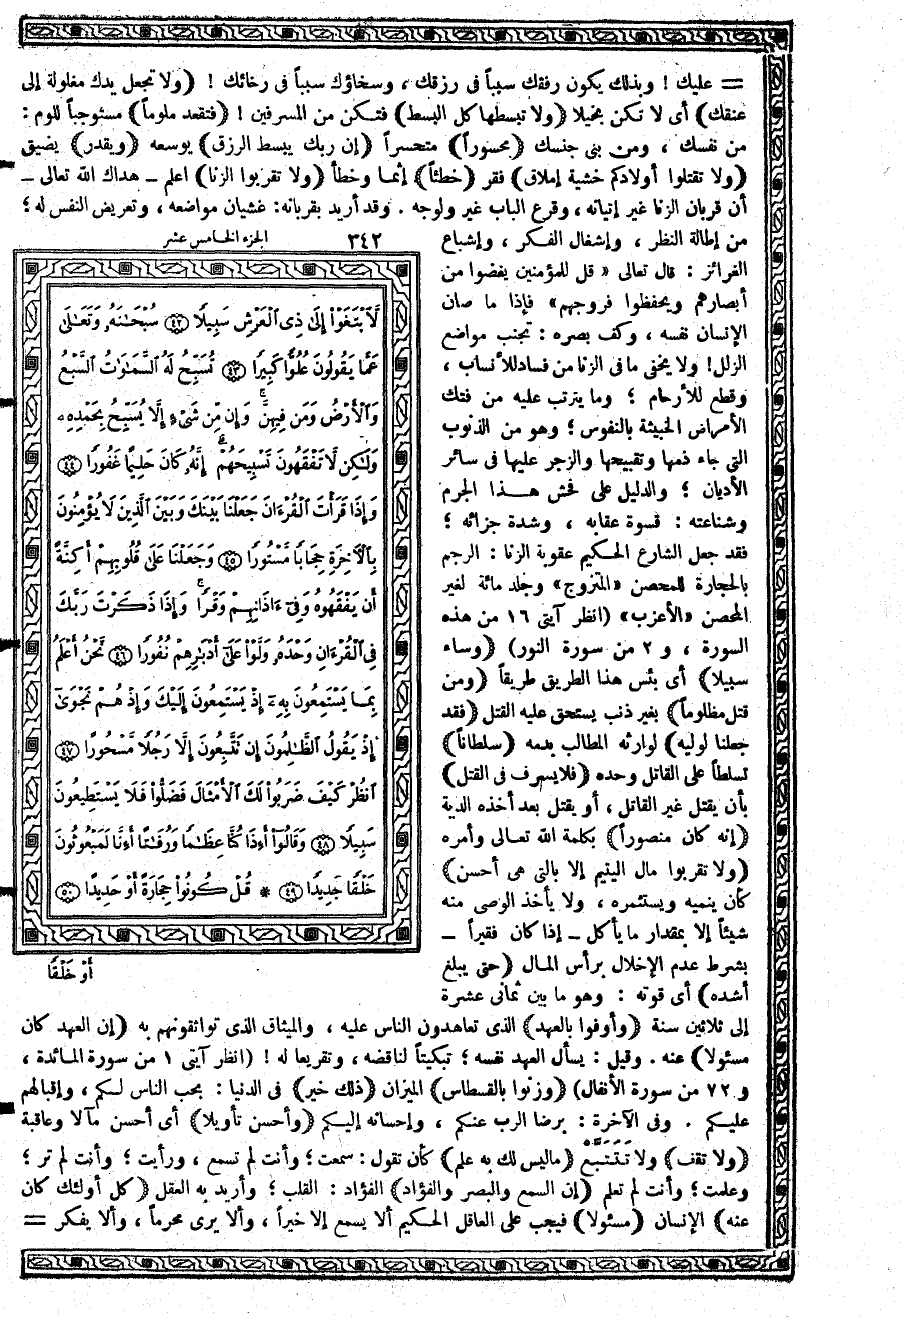 = عليك ! وبذلك يكون رفقك سبباً فى رزقك ، وسخاؤك سبباً فى رخائك ! (ولا تجعل يدك مغلولة إلى
عنقك) أى لا تكن بخيلا (ولا تبسطها كل البسط) فتكن من المسرفين ! (فتقعد ملوماً) مستوجباً للوم :
من نفسك ، ومن بنى جنسك (محسوراً) متحسراً (إن ربك يبسط الرزق) يوسعه (ويقدر) يضيق
(ولا تقتلوا أولادكم خشية إملاق) فقر (خطئاً) إثما وخطأ (ولا تقربوا الزنا) اعلم ــ هداك الله تعالى ــ
أن قربان الزنا غير إتيانه ، وقرع الباب غير ولوجه . وقد أريد بقربانه: غشيان مواضعه ، وتعريض النفس له ؛
من إطالة النظر ، وإشغال الفكر ، وإشباع
الغرائز : قال تعالى « قل للمؤمنين يغضوا من
أبصارهم ويحفظوا فروجهم» فإذا ما صان
الإنسان نفسه ، وكف بصره : تجنب مواضع
الزلل! ولا يخفى ما فى الزنا من فساد للأنساب ،
وقطع للأرحام ؛ وما يترتب عليه من فتك
الأمراض الخبيثة بالنفوس ؛ وهو من الذنوب
التى جاء ذمها وتقبيحها والزجر عليها فى سائر
الأديان ؛ والدليل على فحش هذا الجرم
وشناعته : قسوة عقابه ، وشدة جزائه ؛
فقد جعل الشارع الحكيم عقوبة الزنا : الرجم
بالحجارة للمحصن «المتزوج» وجلد مائة لغير
المحصن «الأعزب» (انظر آيتى ١٦ من هذه
السورة ، و ٢ من سورة النور) (وساء
سبيلا) أى بئس هذا الطريق طريقاً (ومن
قتل مظلوماً) بغير ذنب يستحق عليه القتل (فقد
جعلنا لوليه) لوارثه المطالب بدمه (سلطاناً)
تسلطاً على القاتل وحده (فلايسرف فى القتل)
بأن يقتل غير القاتل ، أو يقتل بعد أخذه الدية
(إنه كان منصوراً) بكلمة الله تعالى وأمره
(ولا تقربوا مال اليتيم إلا بالتى هى أحسن)
كأن ينميه ويستثمره ، ولا يأخذ الوصى منه
شيئاً إلا بمقدار ما يأكل ــ إذا كان فقيراً ــ
بشرط عدم الإخلال برأس المال (حتى يبلغ
أشده) أى قوته : وهو ما بين ثمانى عشرة
إلى ثلاثين سنة (وأوفوا بالعهد) الذى تعاهدون الناس عليه ، والميثاق الذى تواثقونهم به (إن العهد كان
مسئولا) عنه . وقيل : يسأل العهد نفسه ؛ تبكيتاً لناقضه ، وتقريعا له ! (انظر آيتى ١ من سورة المائدة ،
و ٧٢ من سورة الأنفال) (وزنوا بالقسطاس) الميزان (ذلك خير) فى الدنيا : بحب الناس لكم ، وإقبالهم
عليكم . وفى الآخرة : برضا الرب عنكم ، وإحسانه إليكم (وأحسن تأويلا) أى أحسن مآلا وعاقبة
(ولا تقف) ولا تَتَتَبَّعْ (ماليس لك به علم) كأن تقول : سمعت ؛ وأنت لم تسمع ، ورأيت ؛ وأنت لم تر ؛
وعلمت ؛ وأنت لم تعلم (إن السمع والبصر والفؤاد) الفؤاد : القلب ؛ وأريد به العقل (كل أولئك كان
عنه) الإنسان (مسئولا) فيجب على العاقل الحكيم ألا يسمع إلا خيراً ، وألا يرى محرماً ، وألا يفكر =
٣٤٢ الجزء الخامس عشر
لَّٱبْتَغَوْاْ إِلَىٰ ذِى ٱلْعَرْشِ سَبِيلًا ٤٢ سُبْحَٰنَهُۥ وَتَعَٰلَىٰ
عَمَّا يَقُولُونَ عُلُوًّا كَبِيرًا ٤٣ تُسَبِّحُ لَهُ ٱلسَّمَٰوَٰتُ ٱلسَّبْعُ
وَٱلْأَرْضُ وَمَن فِيهِنَّ ۚ وَإِن مِّن شَىْءٍ إِلَّا يُسَبِّحُ بِحَمْدِهِۦ
وَلَٰكِن لَّا تَفْقَهُونَ تَسْبِيحَهُمْ ۗ إِنَّهُۥ كَانَ حَلِيمًا غَفُورًا ٤٤
وَإِذَا قَرَأْتَ ٱلْقُرْءَانَ جَعَلْنَا بَيْنَكَ وَبَيْنَ ٱلَّذِينَ لَا يُؤْمِنُونَ
بِٱلْءَاخِرَةِ حِجَابًا مَّسْتُورًا ٤٥ وَجَعَلْنَا عَلَىٰ قُلُوبِهِمْ أَكِنَّةً
أَن يَفْقَهُوهُ وَفِىٓ ءَاذَانِهِمْ وَقْرًا ۚ وَإِذَا ذَكَرْتَ رَبَّكَ
فِى ٱلْقُرْءَانِ وَحْدَهُۥ وَلَّوْاْ عَلَىٰٓ أَدْبَٰرِهِمْ نُفُورًا ٤٦ نَّحْنُ أَعْلَمُ
بِمَا يَسْتَمِعُونَ بِهِۦٓ إِذْ يَسْتَمِعُونَ إِلَيْكَ وَإِذْ هُمْ نَجْوَىٰٓ
إِذْ يَقُولُ ٱلظَّٰلِمُونَ إِن تَتَّبِعُونَ إِلَّا رَجُلًا مَّسْحُورًا ٤٧
ٱنظُرْ كَيْفَ ضَرَبُواْ لَكَ ٱلْأَمْثَالَ فَضَلُّواْ فَلَا يَسْتَطِيعُونَ
سَبِيلًا ٤٨ وَقَالُوٓاْ أَءِذَا كُنَّا عِظَٰمًا وَرُفَٰتًا أَءِنَّا لَمَبْعُوثُونَ
خَلْقًا جَدِيدًا ٤٩ * قُلْ كُونُواْ حِجَارَةً أَوْ حَدِيدًا ٥٠
أَوْ خَلْقًا